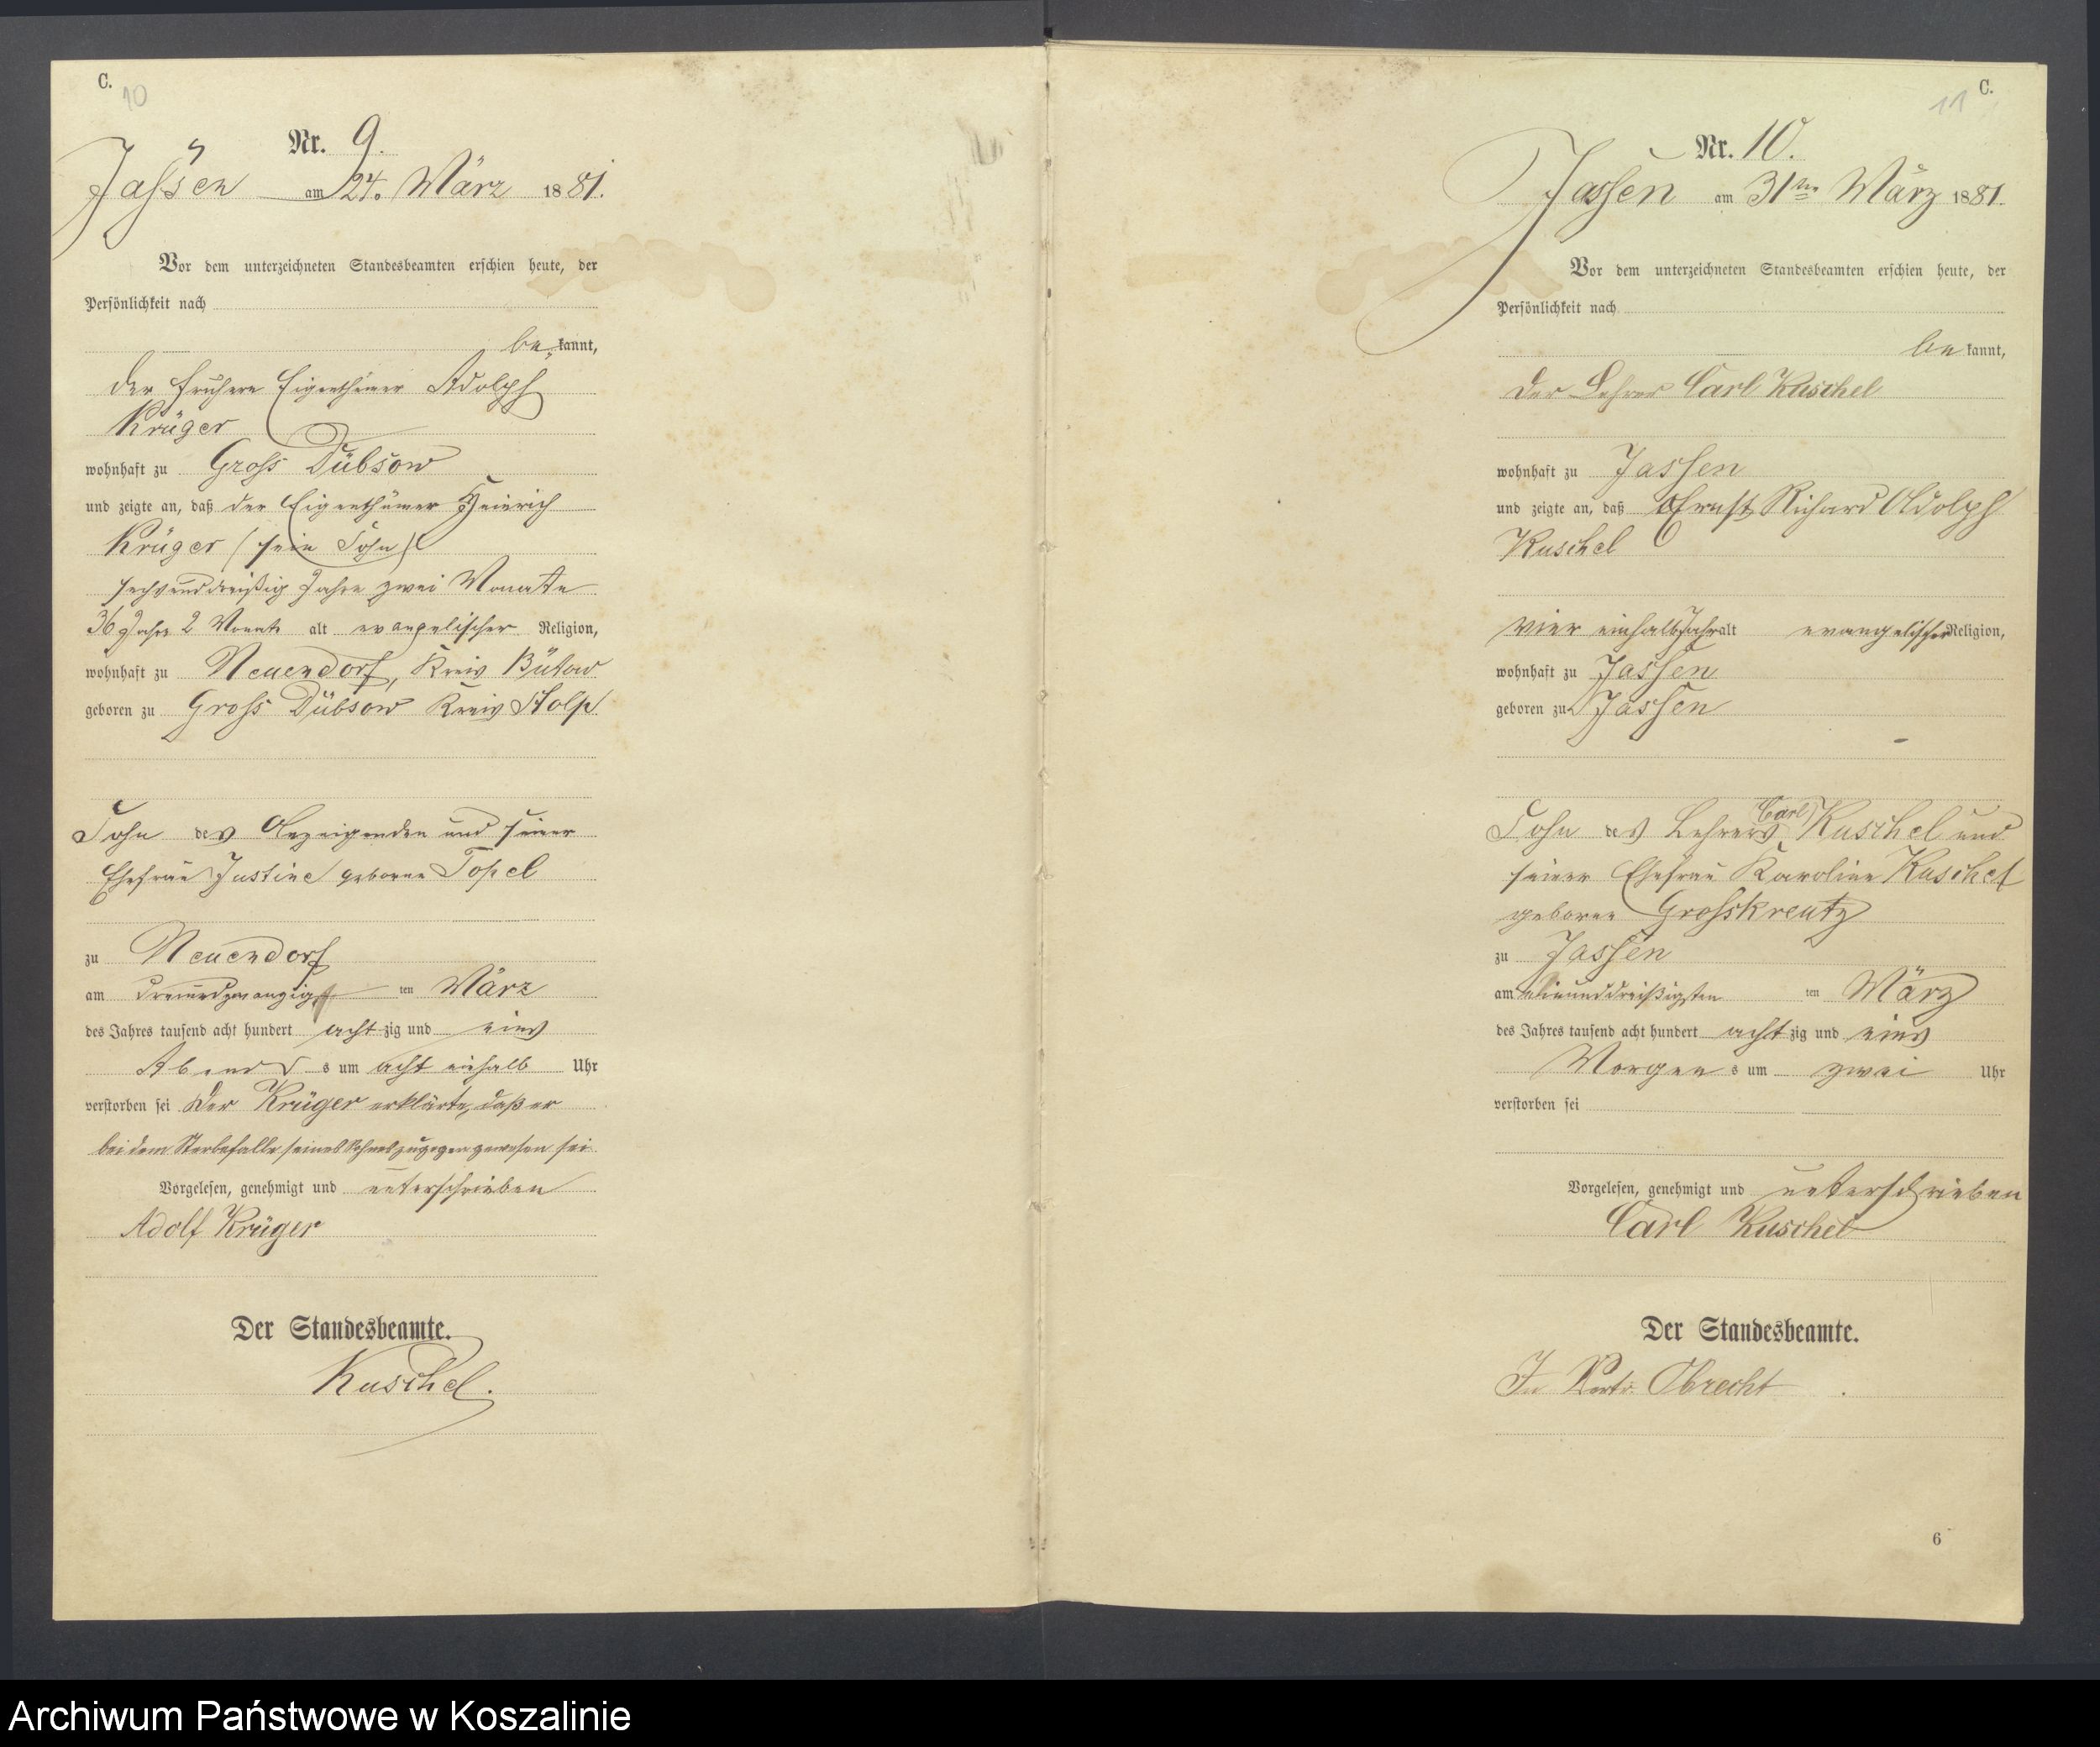 C.
10
Nr. 9.
Jassen am 24. März 1881.
Vor dem unterzeichneten Standesbeamten erschien heute, der
Persönlichkeit nach
be kannt,
der frühere Eigenthümer Adolph
Krüger
wohnhaft zu Gross Dübsow
und zeigte an, daß der Eigenthümer Heinrich
Krüger (sein Sohn)
sechsunddreißig Jahre zwei Monate
36 Jahre 2 Monate alt evangelischer Religion,
wohnhaft zu Neuendorf, Kreis Bütow
geboren zu Gross Dübsow Kreis Stolp
Sohn des Anzeigenden und seiner
Ehefrau Justine geborene Topel
zu Neuendorf
am dreiundzwanzigst ten März
des Jahres tausend acht hundert acht zig und eins
Abend s um acht einhalb Uhr
verstorben sei Der Krüger erklärte, daß er
bei dem Sterbefalle seines Sohnes zugegen gewesen sei.
Vorgelesen, genehmigt und unterschrieben
Adolf Krüger
Der Standesbeamte.
Kuschel.
C.
11
Nr. 10.
Jassen am 31ten März 1881.
Vor dem unterzeichneten Standesbeamten erschien heute, der
Persönlichkeit nach
be kannt,
der Lehrer Carl Kuschel
wohnhaft zu Jassen
und zeigte an, daß Ernst Richard Adolph
Kuschel
vier einhalb Jahr alt evangelischer Religion,
wohnhaft zu Jassen
geboren zu Jassen
Sohn des Lehrers (Carl) Kuschel und
seiner Ehefrau Karoline Kuschel
geborene Grosskreutz
zu Jassen
am einunddreißigsten ten März
des Jahres tausend acht hundert acht zig und eins
Morgen s um zwei Uhr
verstorben sei
Vorgelesen, genehmigt und unterschrieben
Carl Kuschel
Der Standesbeamte.
In Vertr. Obrecht
6
Archiwum Państwowe w Koszalinie